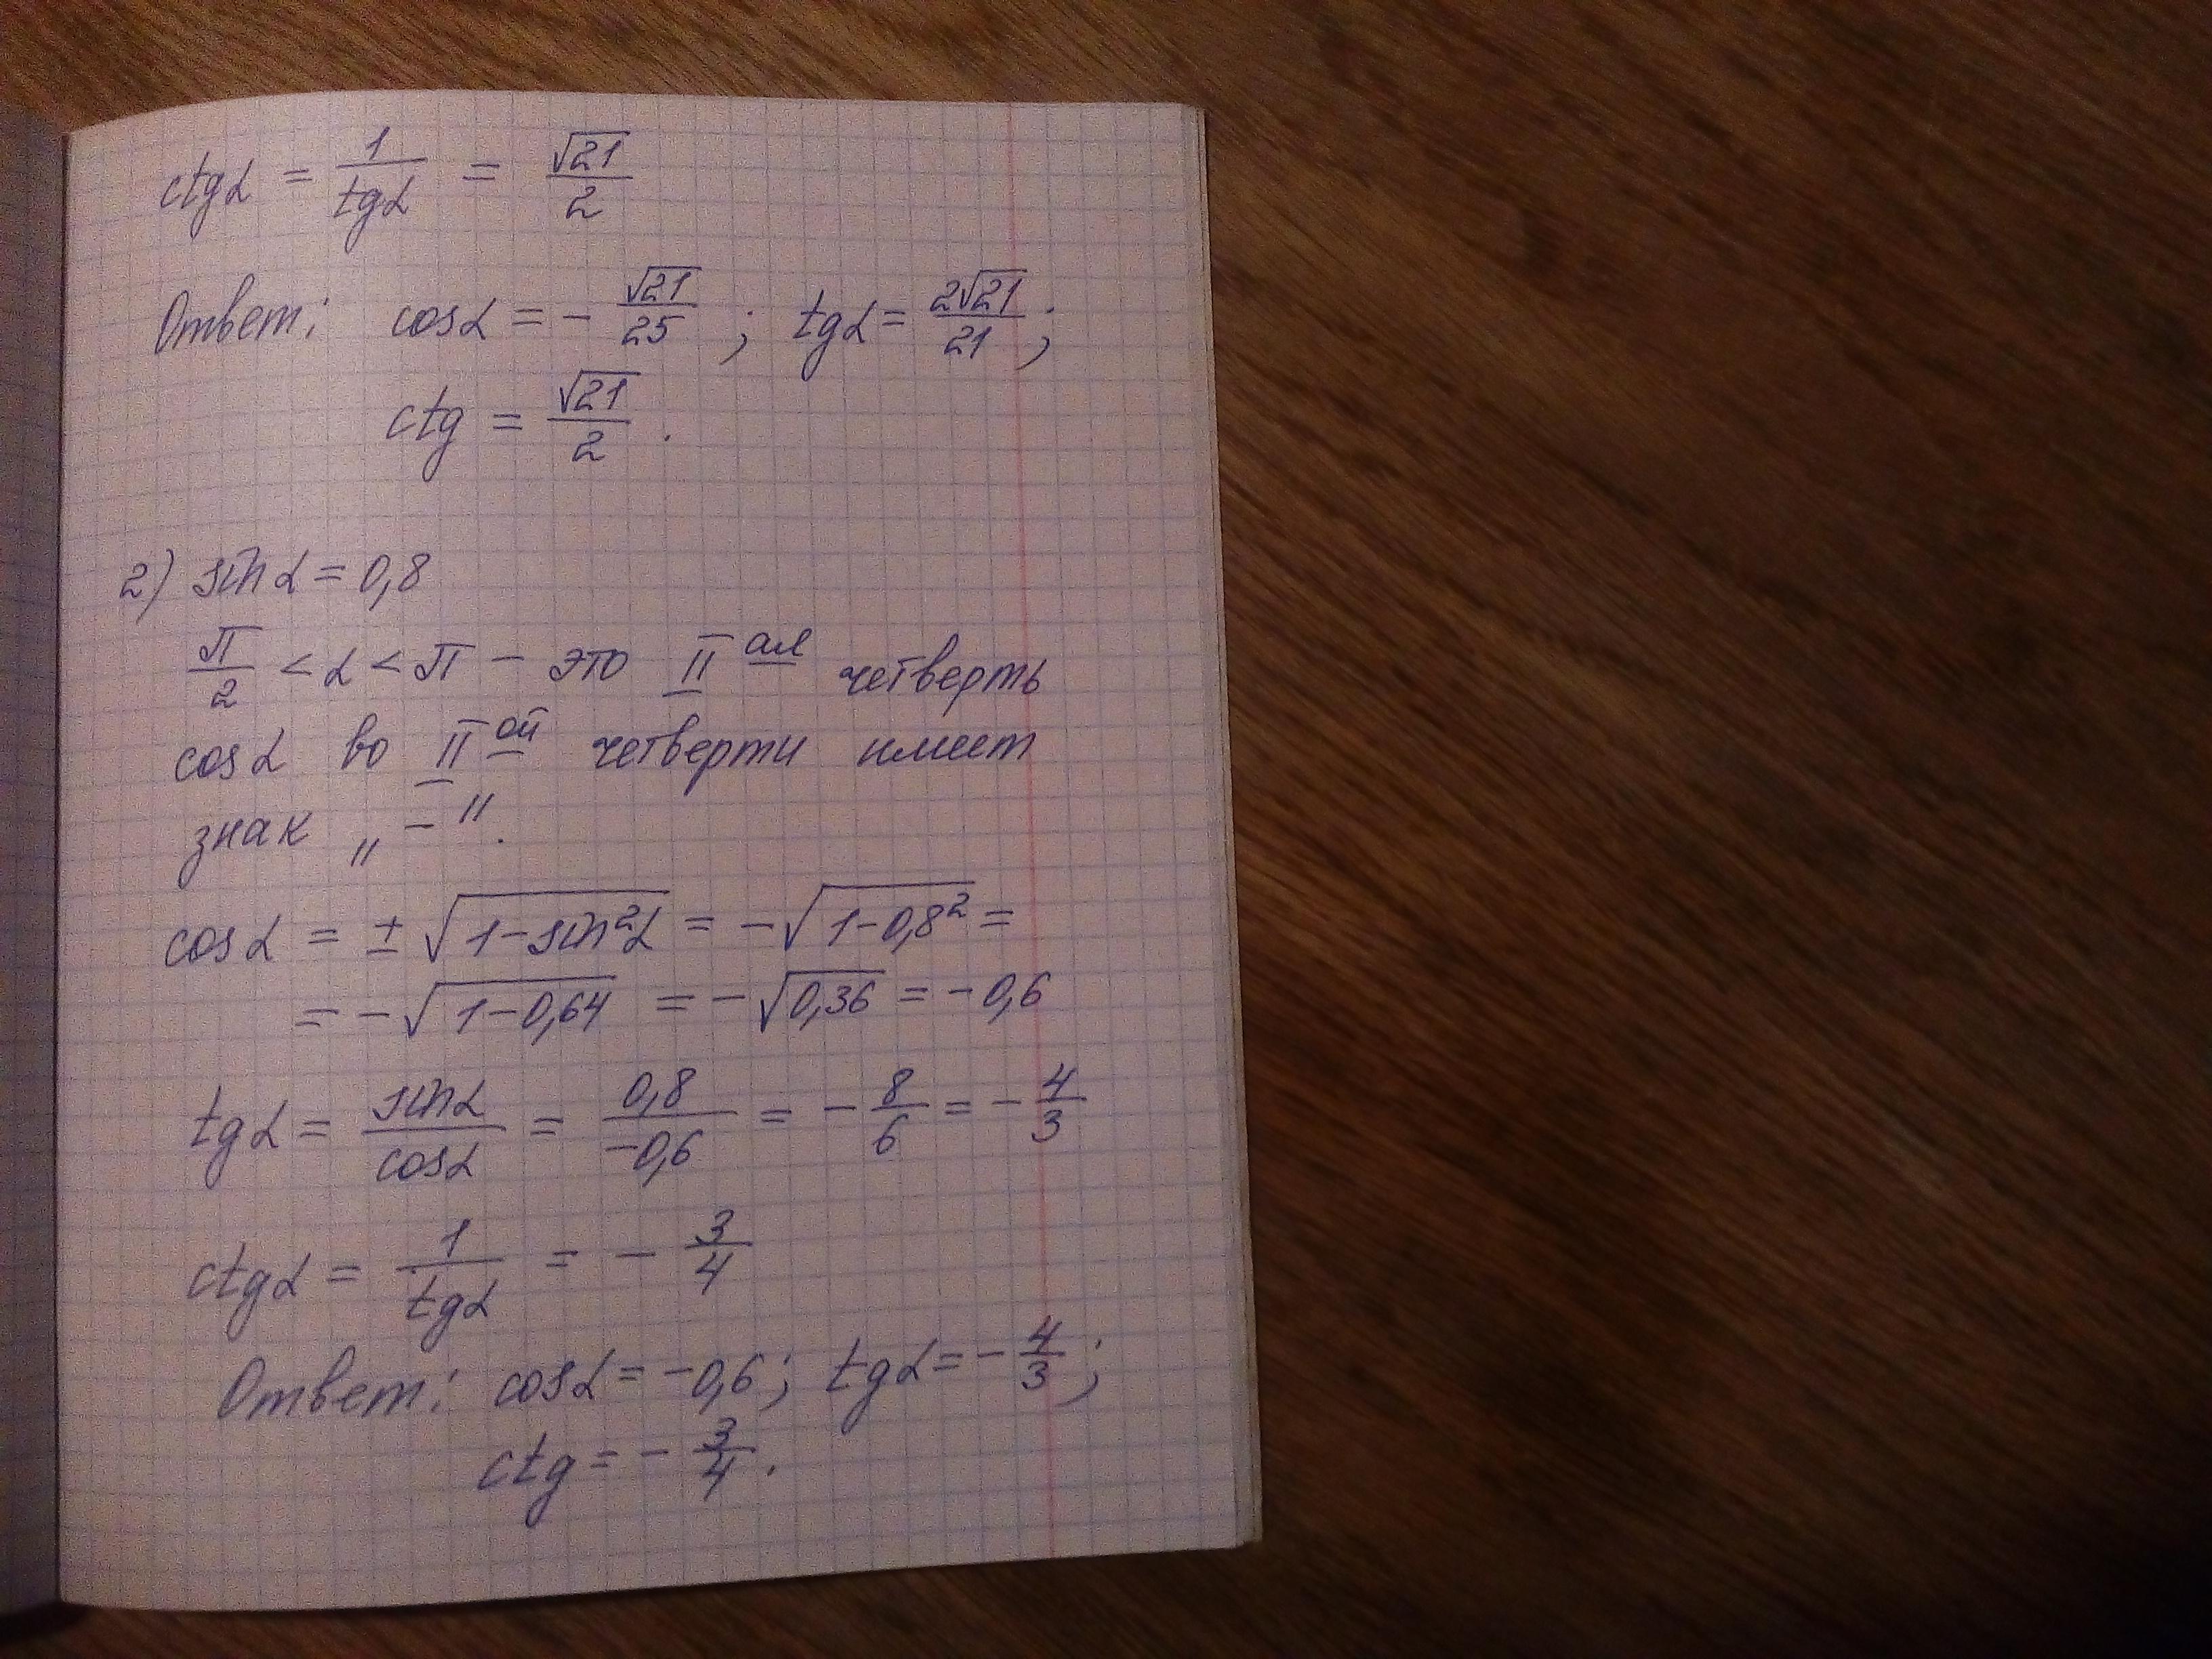 ctgα = 1/tgα = √21/2
Ответ: cosα = - √21/25 ; tgα = 2√21/21 ;
ctg = √21/2 .
2) sinα = 0,8
π/2 < α < π - это II ая четверть
cosα во II ой четверти имеет
знак „ - ".
cosα = ± √(1-sin²α) = -√(1-0,8²) =
= -√(1-0,64) = -√0,36 = -0,6
tgα = sinα/cosα = 0,8/-0,6 = - 8/6 = - 4/3
ctgα = 1/tgα = - 3/4
Ответ: cosα = -0,6; tgα = - 4/3 ;
ctg = - 3/4 .